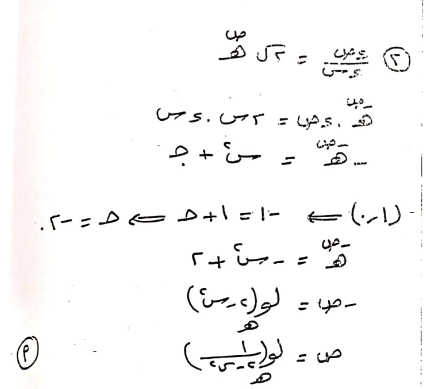 ٢) دص/دس = ٢س هـ^ص
هـ^-ص . دص = ٢س . دس
-هـ^-ص = س٢ + جـ
(١،٠) ⇐ -١ = ١ + جـ ⇐ جـ = -٢.
هـ^-ص = -س٢ + ٢
-ص = لو_هـ(٢-س٢)
ص = لو_هـ(١/(٢-س٢))
٩